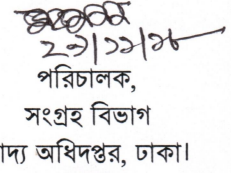 ২৭/১১/১৮
পরিচালক,
সংগ্রহ বিভাগ
াদ্য অধিদপ্তর, ঢাকা।